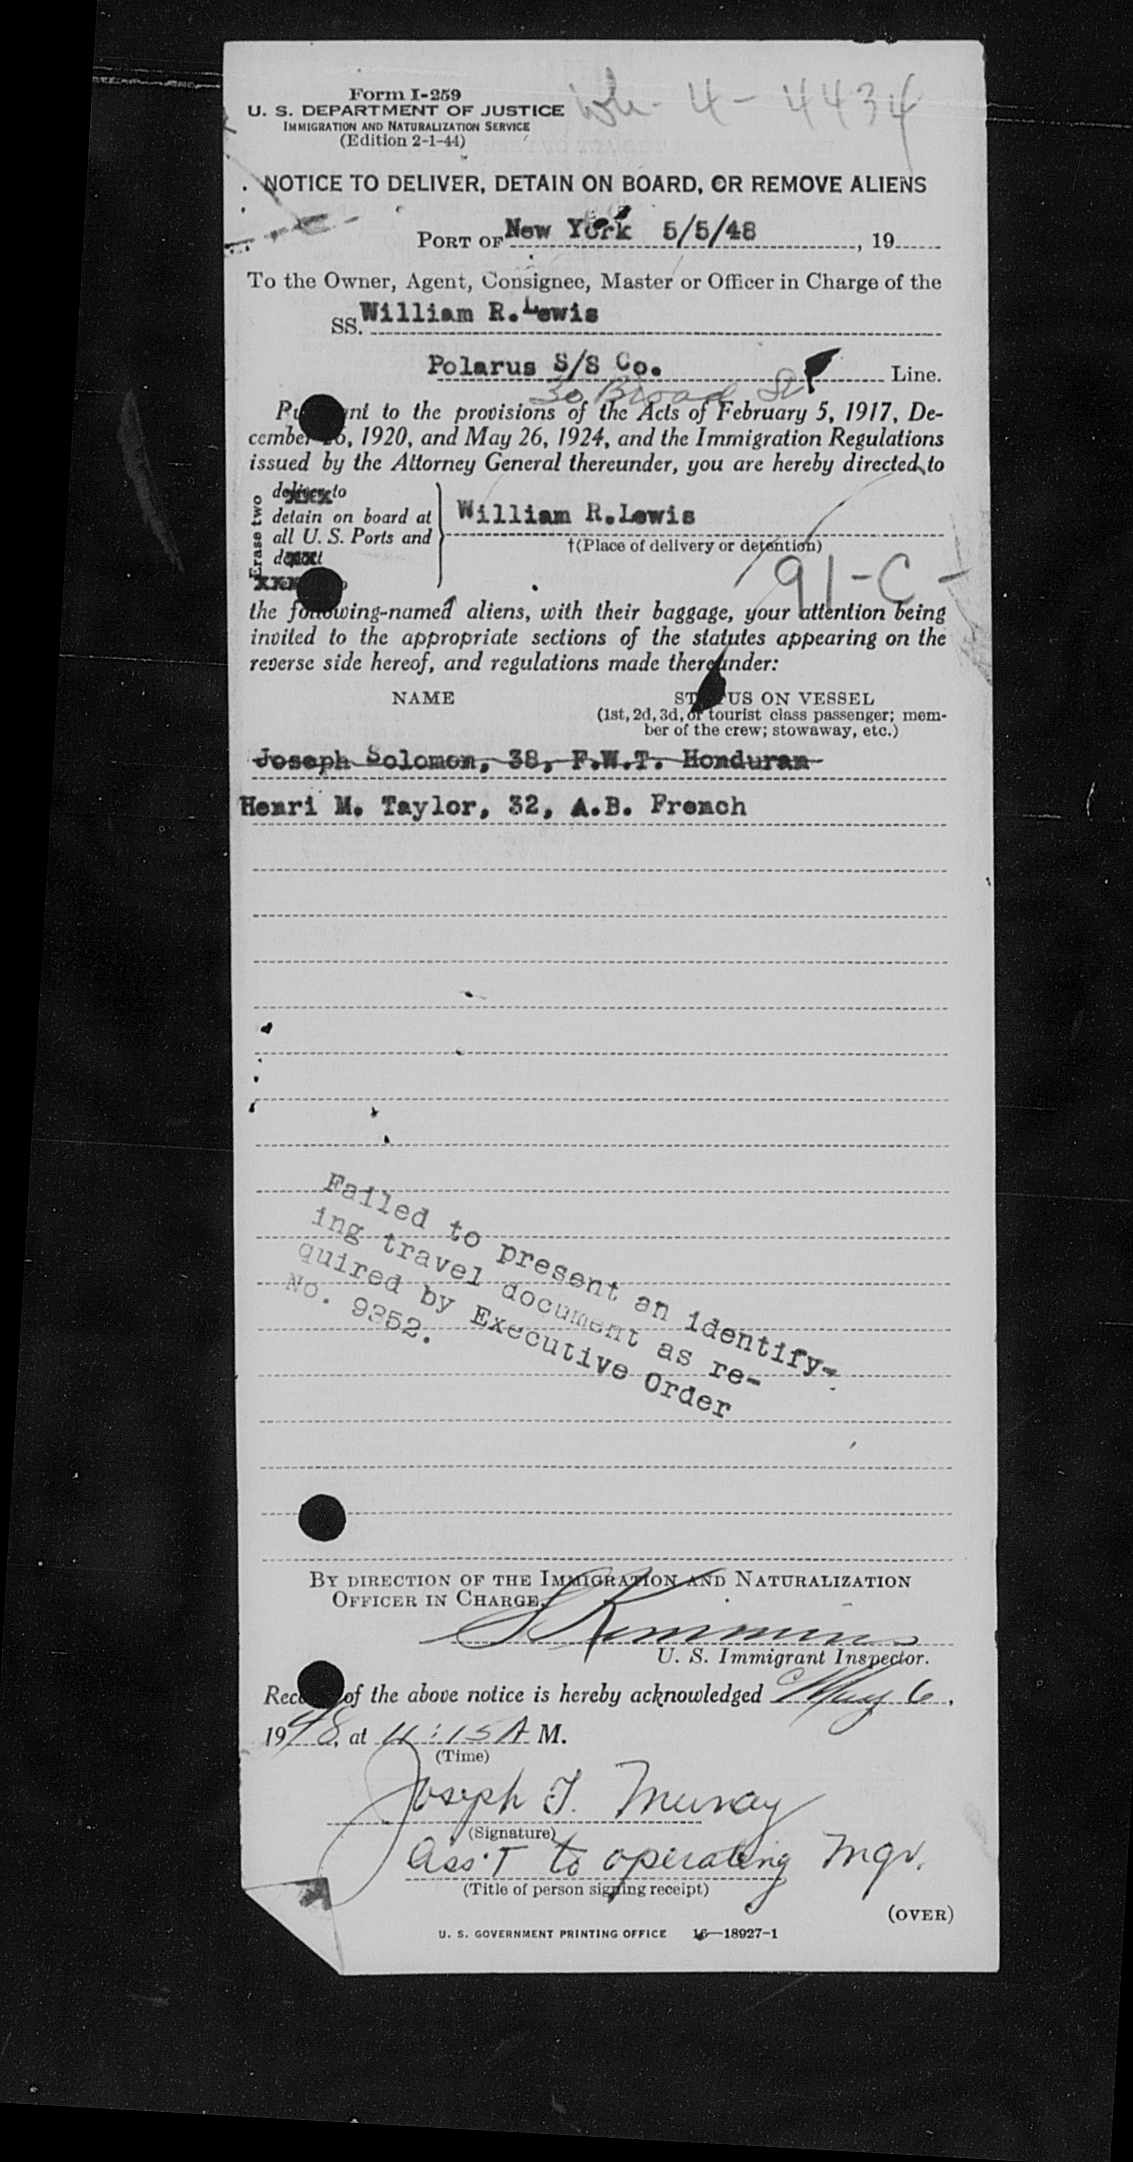 Form I-259
U. S. DEPARTMENT OF JUSTICE
IMMIGRATION AND NATURALIZATION SERVICE
(Edition 2-1-44)
Wh- 4-4434
NOTICE TO DELIVER, DETAIN ON BOARD, OR REMOVE ALIENS
PORT OF New York 5/5/48, 19
To the Owner, Agent, Consignee, Master or Officer in Charge of the
SS. William R. Lewis
Polarus S/S Co. Line.
30 Broad St
Pu nt to the provisions of the Acts of February 5, 1917, De-
cember 26, 1920, and May 26, 1924, and the Immigration Regulations
issued by the Attorney General thereunder, you are hereby directed to
Erase two
deliver to
detain on board at
all U. S. Ports and
William R.Lewis
†(Place of delivery or detention)
91-C-
the following-named aliens, with their baggage, your attention being
invited to the appropriate sections of the statutes appearing on the
reverse side hereof, and regulations made thereunder:
NAME STATUS ON VESSEL
(1st, 2d, 3d, or tourist class passenger; mem-
ber of the crew; stowaway, etc.)
Joseph Solomon, 38, F.W.T. Honduran
Henri M. Taylor, 32, A.B. French
Failed to present an identify-
ing travel document as re-
quired by Executive Order
No. 9352.
BY DIRECTION OF THE IMMIGRATION AND NATURALIZATION
OFFICER IN CHARGE,
U. S. Immigrant Inspector.
Rec of the above notice is hereby acknowledged May 6,
1948, at 11:15 A M.
(Time)
Joseph T. Murray
(Signature)
Ass't to operating Mgr.
(Title of person signing receipt)
(OVER)
U. S. GOVERNMENT PRINTING OFFICE 16—18927-1